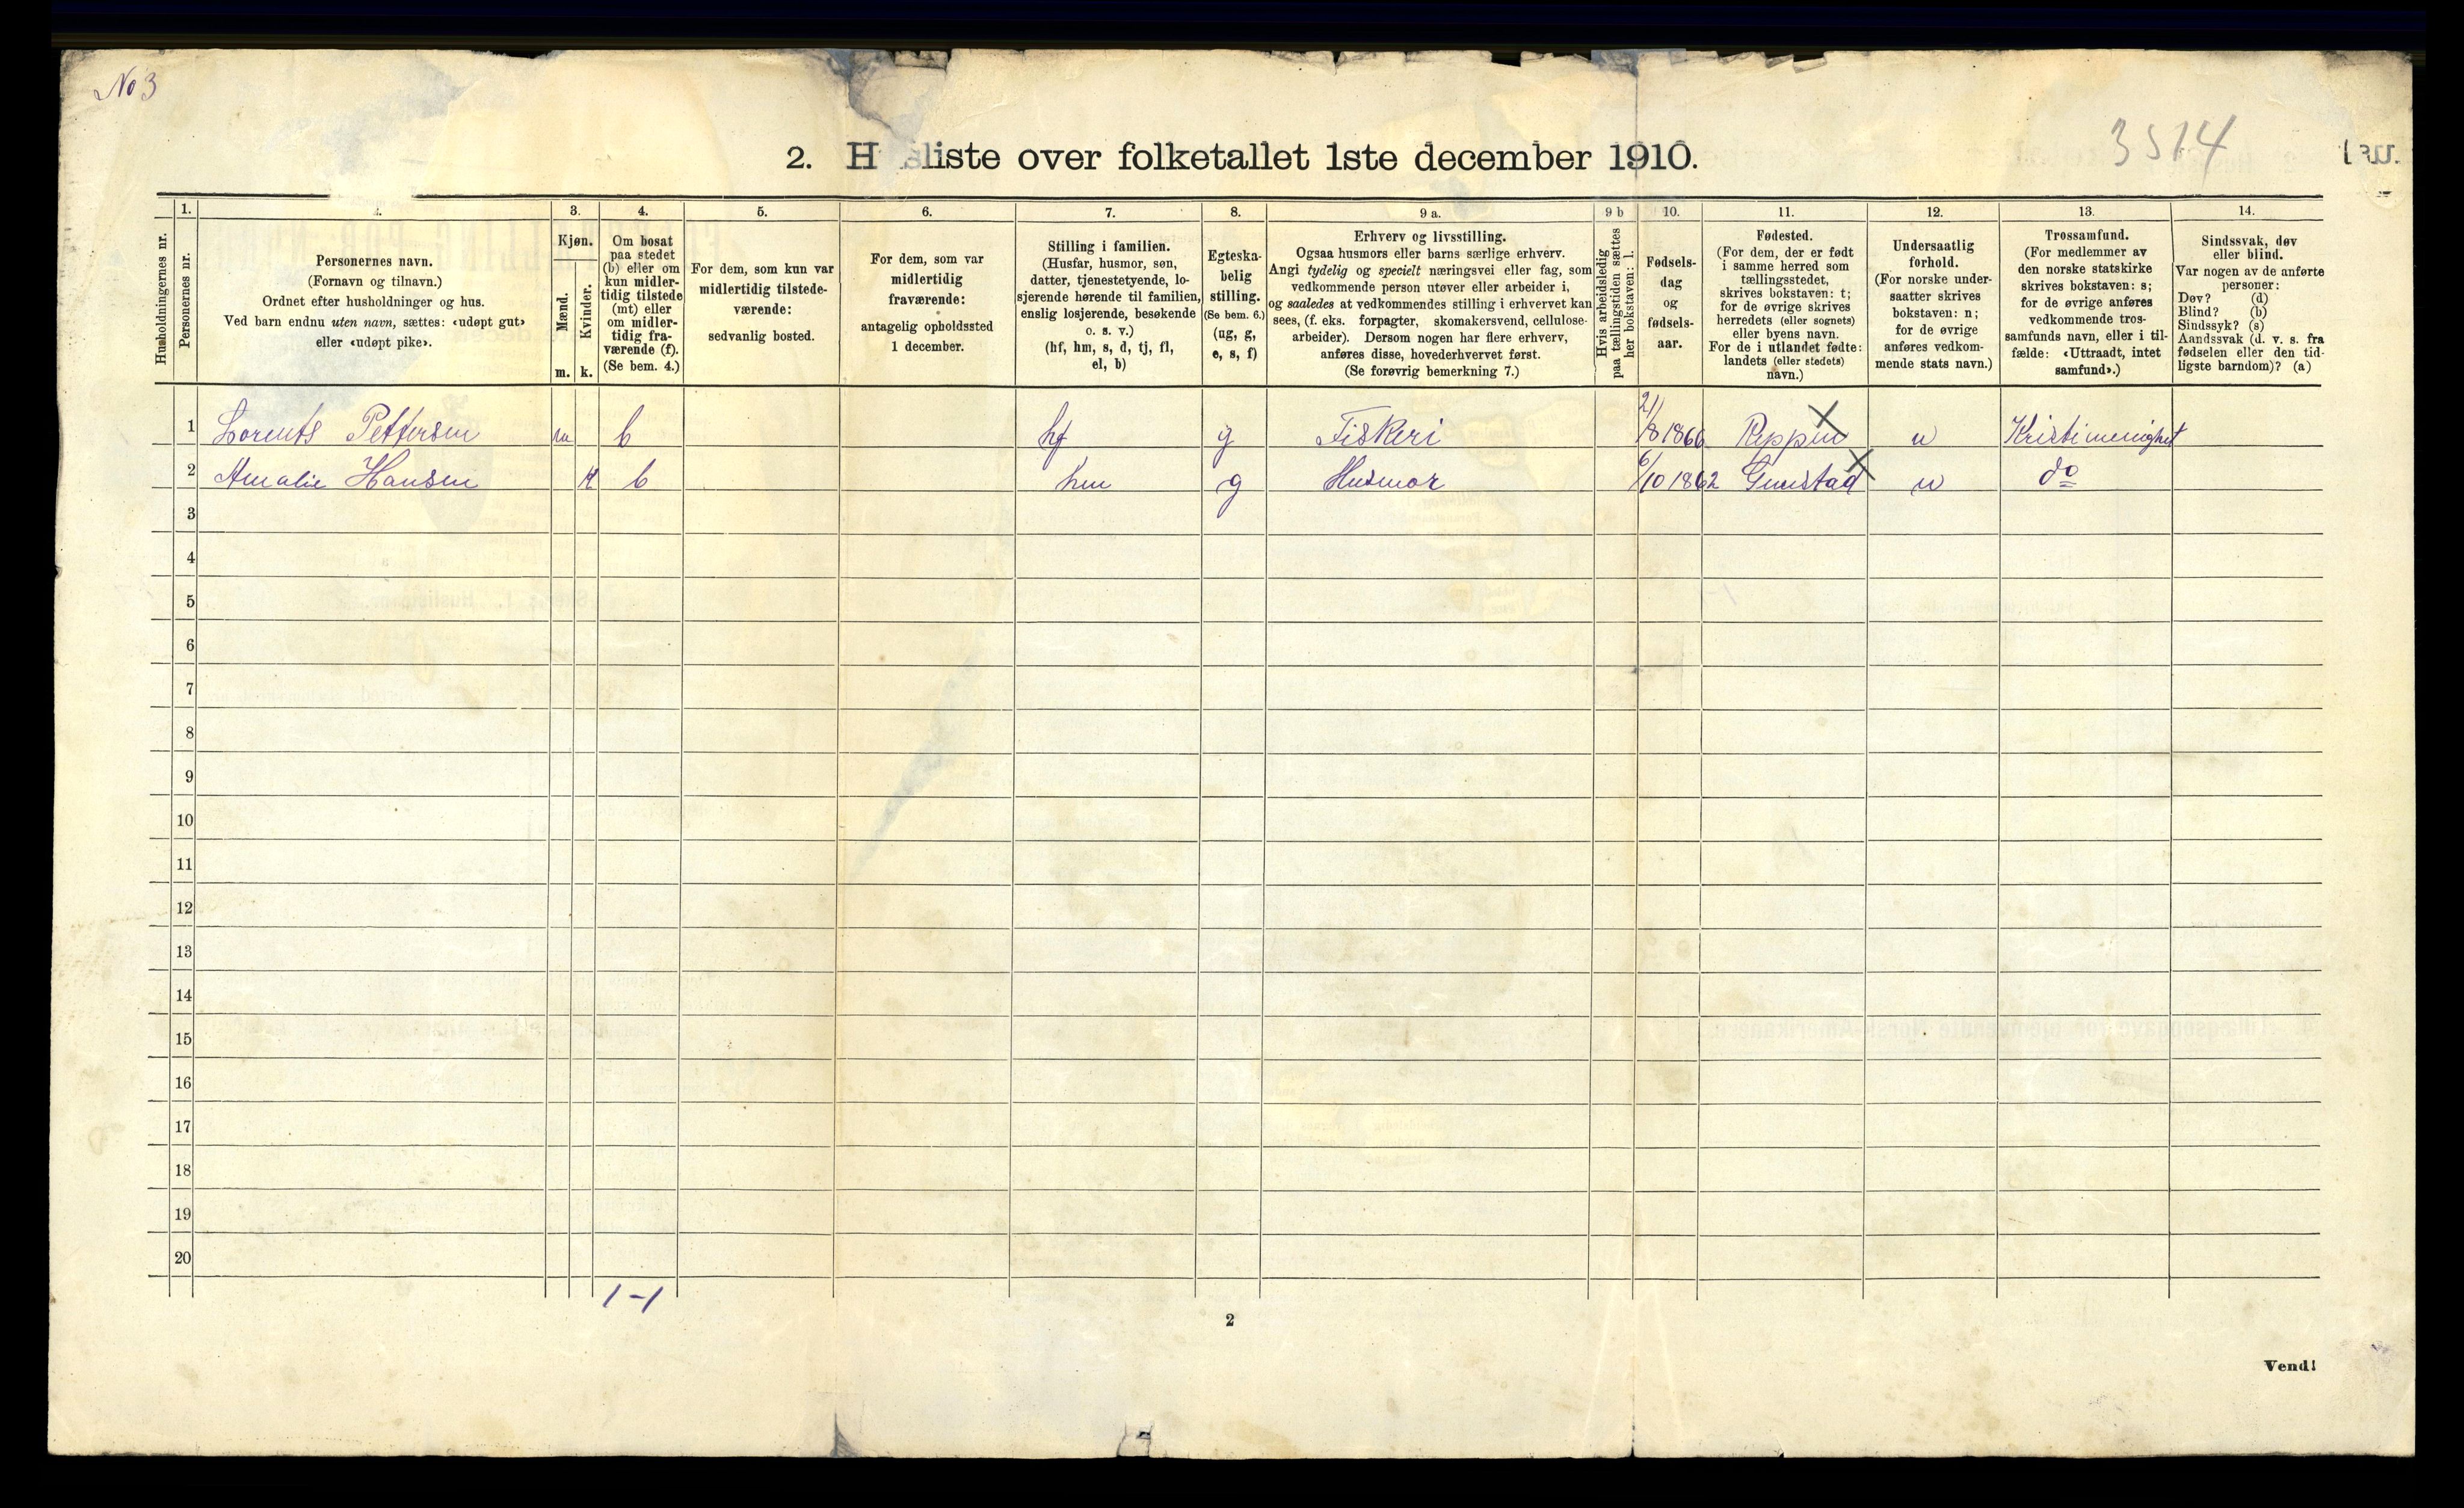 No 3
3514
2. H sliste over folketallet 1ste december 1910.
Husholdningernes nr.
1.
Personernes nr.
Personernes navn.
(Fornavn og tilnavn.)
Ordnet efter husholdninger og hus.
Ved barn endnu uten navn, sættes: «udøpt gut»
eller «udøpt pike».
3.
Kjøn.
Mænd.
Kvinder.
m. k.
4.
Om bosat
paa stedet
(b) eller om
kun midler-
tidig tilstede
(mt) eller
om midler-
tidig fra-
værende (f).
(Se bem. 4.)
5.
For dem, som kun var
midlertidig tilstede-
værende:
sedvanlig bosted.
6.
For dem, som var
midlertidig
fraværende:
antagelig opholdssted
1 december.
7.
Stilling i familien.
(Husfar, husmor, søn,
datter, tjenestetyende, lo-
sjerende hørende til familien,
enslig losjerende, besøkende
o. s. v.)
(hf, hm, s, d, tj, fl,
el, b)
8.
Egteska-
belig
stilling.
(Se bem. 6.)
(ug, g,
e, s, f)
9 a.
Erhverv og livsstilling.
Ogsaa husmors eller barns særlige erhverv.
Angi tydelig og specielt næringsvei eller fag, som
vedkommende person utøver eller arbeider i,
og saaledes at vedkommendes stilling i erhvervet kan
sees, (f. eks. forpagter, skomakersvend, cellulose-
arbeider). Dersom nogen har flere erhverv,
anføres disse, hovederhvervet først.
(Se forøvrig bemerkning 7.)
9 b
Hvis arbeidsledig
paa tællingstiden sættes
her bokstaven: l.
10.
Fødsels-
dag
og
fødsels-
aar.
11.
Fødested.
(For dem, der er født
i samme herred som
tællingsstedet,
skrives bokstaven: t;
for de øvrige skrives
herredets (eller sognets)
eller byens navn.
For de i utlandet fødte:
landets (eller stedets)
navn.)
12.
Undersaatlig
forhold.
(For norske under-
saatter skrives
bokstaven: n;
for de øvrige
anføres vedkom-
mende stats navn.)
13.
Trossamfund.
(For medlemmer av
den norske statskirke
skrives bokstaven: s;
for de øvrige anføres
vedkommende tros-
samfunds navn, eller i til-
fælde: «Uttraadt, intet
samfund».)
14.
Sindssvak, døv
eller blind.
Var nogen av de anførte
personer:
Døv? (d)
Blind? (b)
Sindssyk? (s)
Aandssvak (d. v. s. fra
fødselen eller den tid-
ligste barndom)? (a)
1 Lorents Pettersen m b hf g Fiskeri 21/8 1866 Reppen n Kristi menighet
2 Amalie Hansen k b hm g Husmor 6/10 1862 n do
3
4
5
6
7
8
9
10
11
12
13
14
15
16
17
18
19
20
1-1
2
Vend!